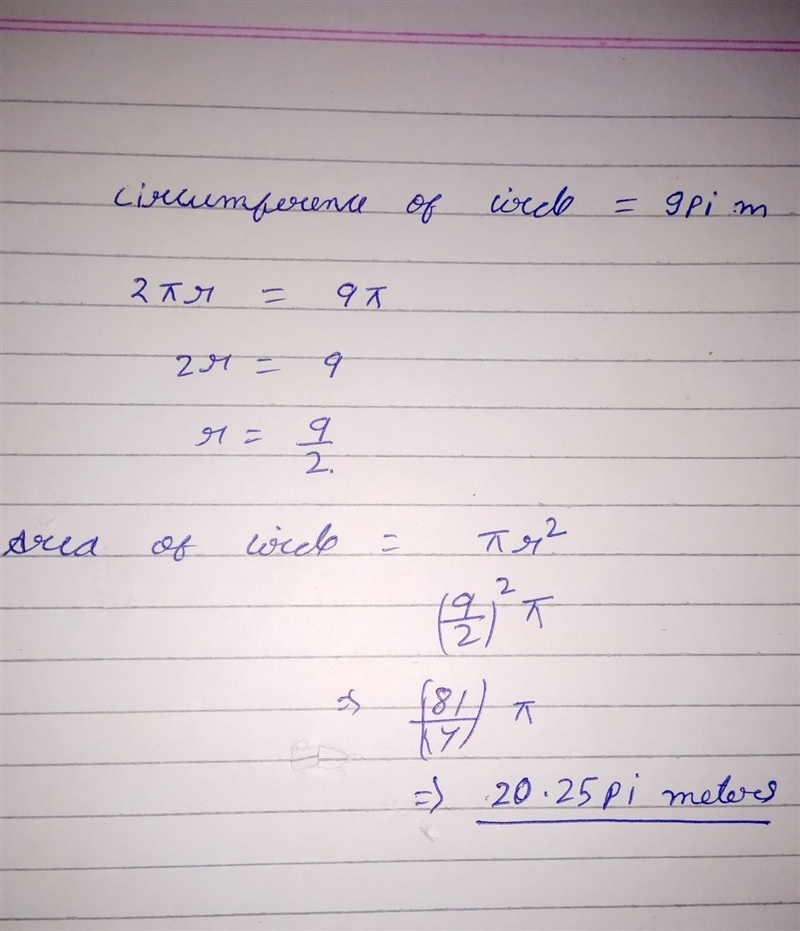 Circumference of circle = 9pi m
2πr = 9π
2r = 9
r = 9/2.
Area of circle = πr²
(9/2)² π
⇒ (81/4) π
⇒ 20.25pi meters